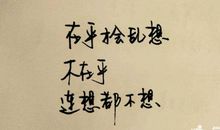 在乎才会乱想.
不在乎
连想都不想.